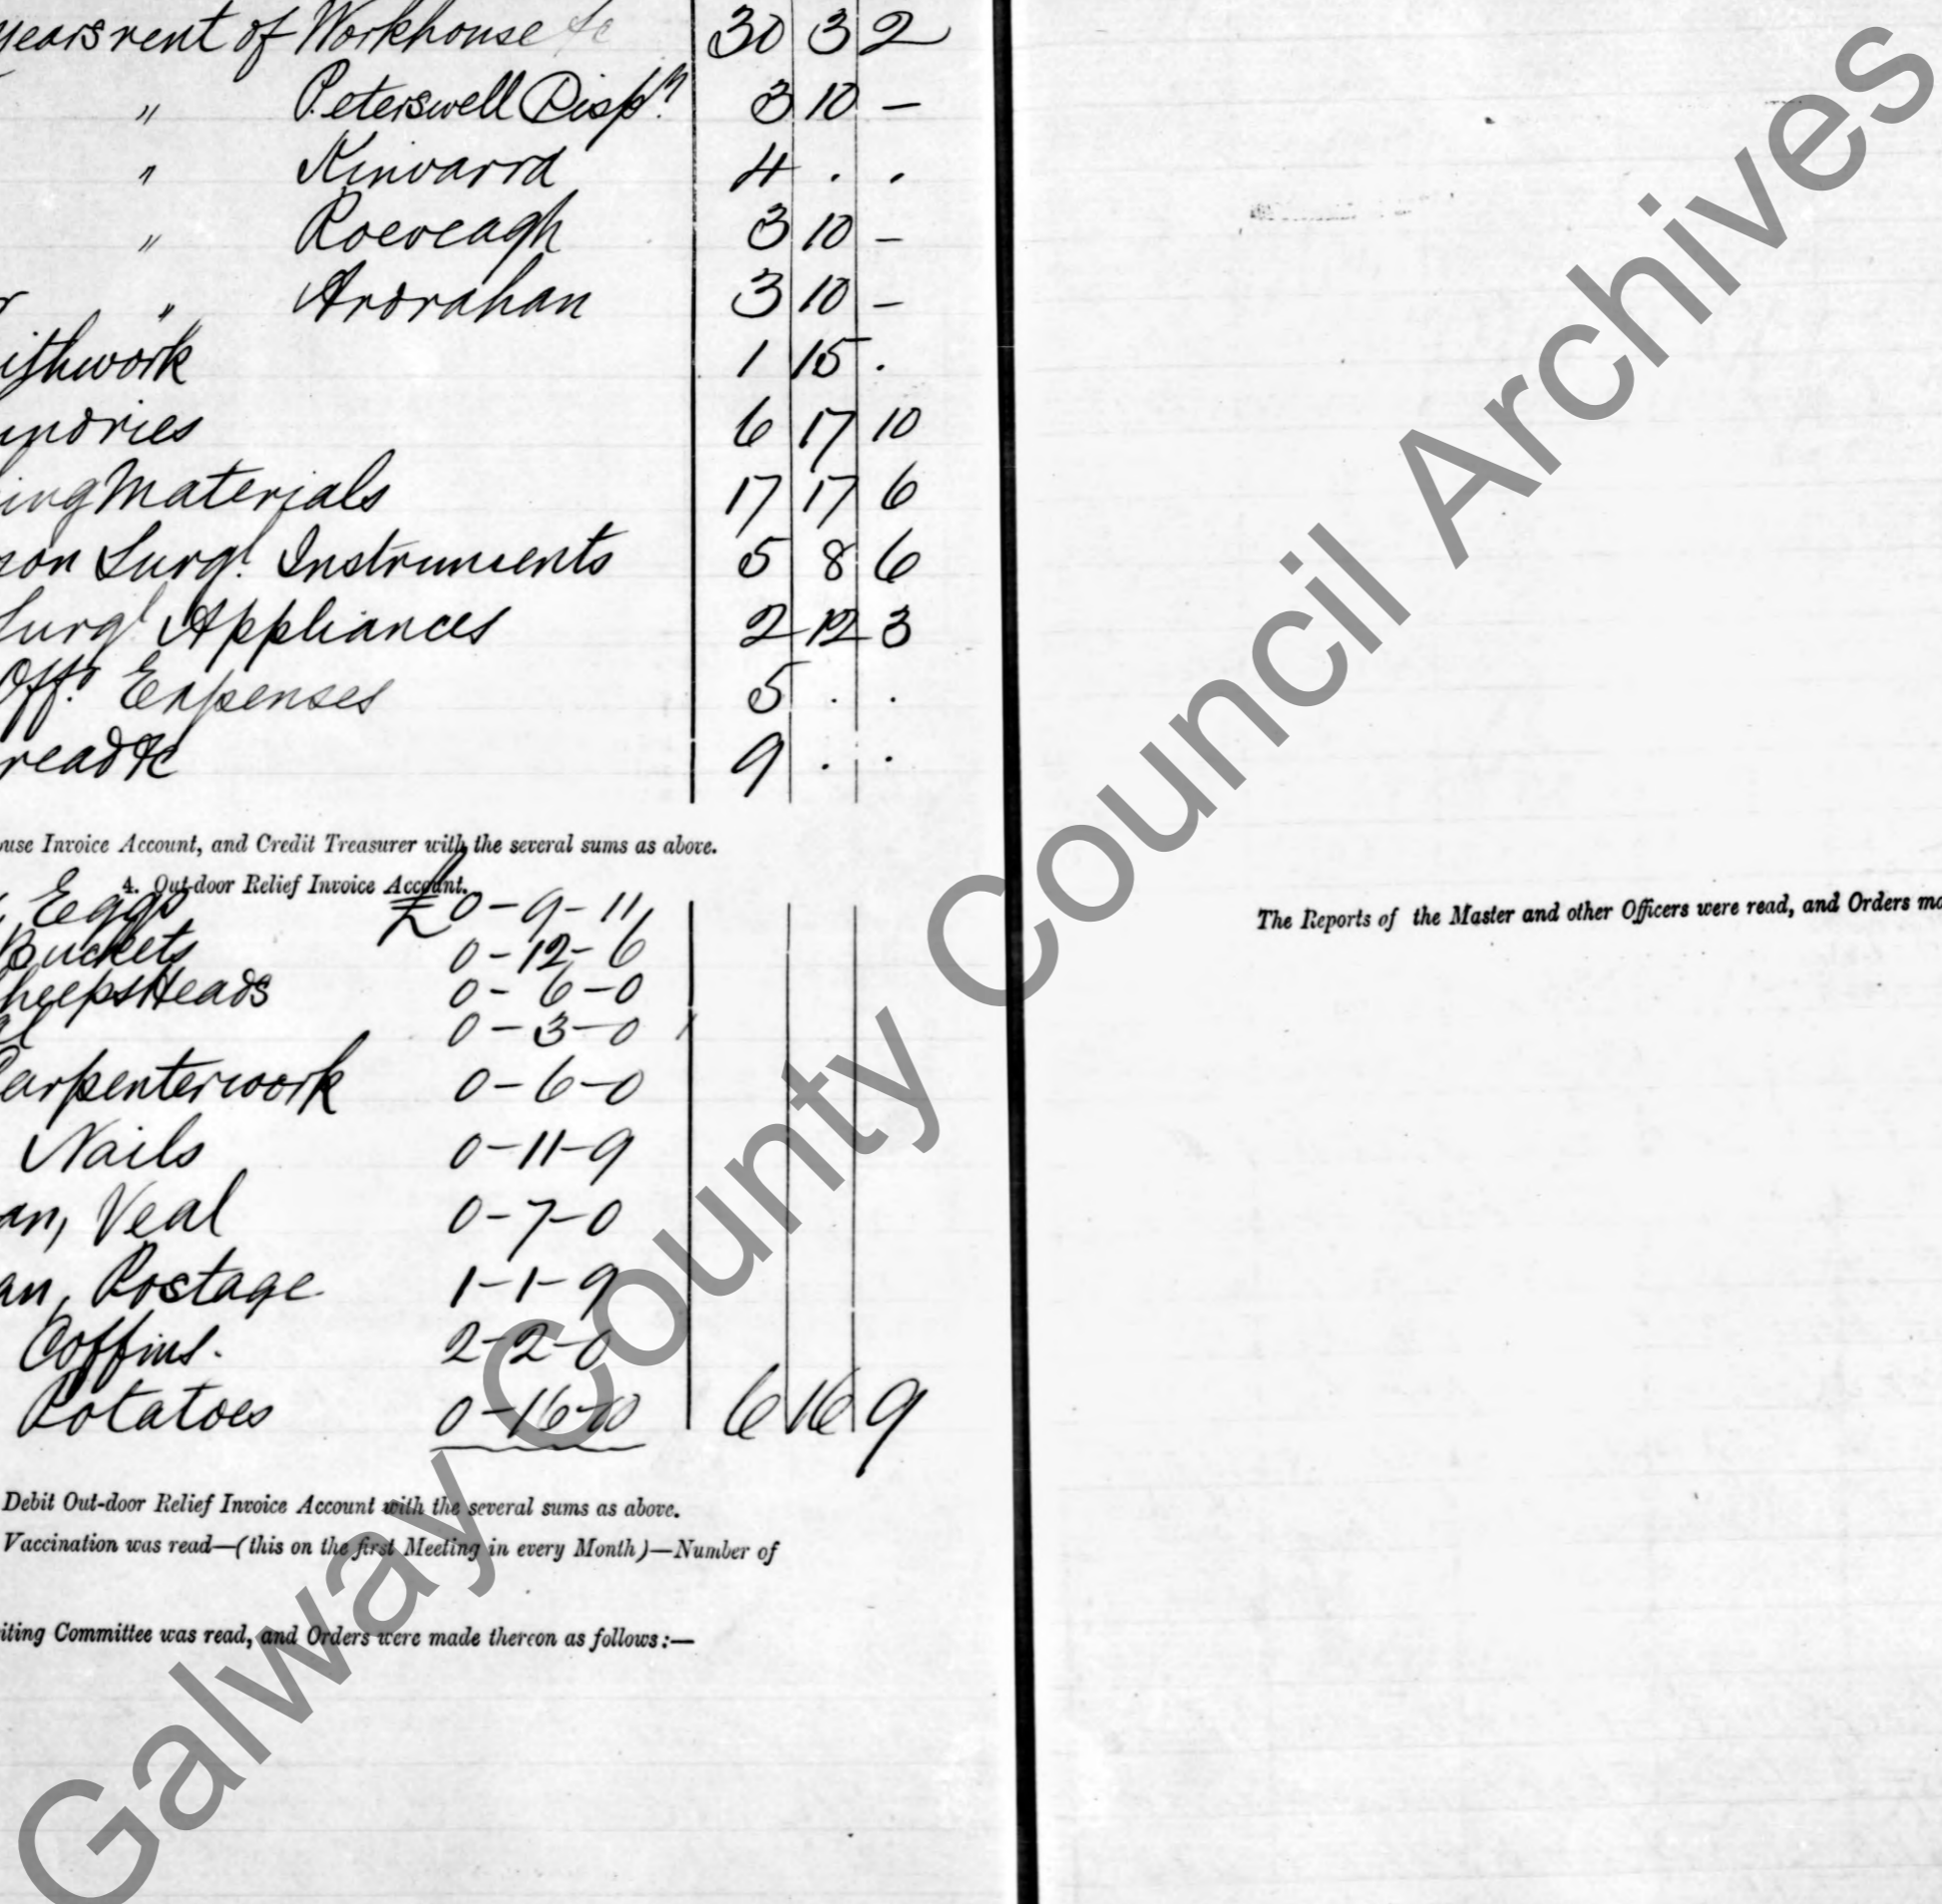 years rent of Workhouse &c 30 3 2
" Peterswell Disp.y 3 10 —
" Kinvarra 4 . .
" Roeveagh 3 10 —
" Ardrahan 3 10 —
ithwork 1 15 .
undries 6 17 10
ing Materials 17 17 6
son Surgl. Instruments 5 8 6
Surgl Appliances 2 12 3
Off.s Expenses 5 . .
read &c 9 . .
use Invoice Account, and Credit Treasurer with the several sums as above.
4. Out-door Relief Invoice Account.
, Eggs £0-9-11
Buckets 0-12-6
heepsHeads 0-6-0
al 0-3-0
Carpenterwork 0-6-0
Nails 0-11-9
an, Veal 0-7-0
an, Postage 1-1-9
Coffins. 2-2-0
Potatoes 0-16-10 6 16 9
Debit Out-door Relief Invoice Account with the several sums as above.
Vaccination was read—(this on the first Meeting in every Month)—Number of
iting Committee was read, and Orders were made thereon as follows:—
The Reports of the Master and other Officers were read, and Orders ma
Galway County Council Archives